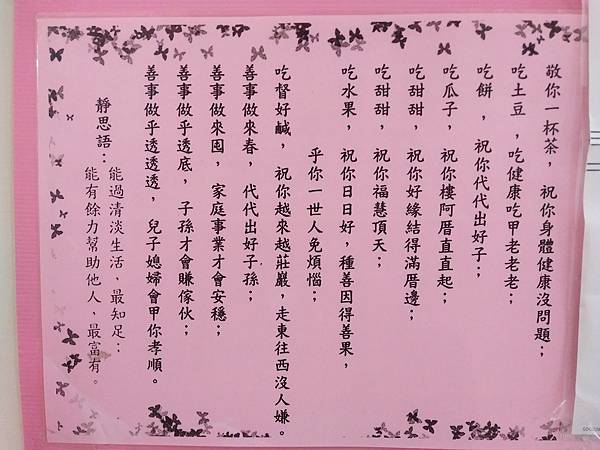 敬你一杯茶， 祝你身體健康沒問題；
吃土豆 ，吃健康吃甲老老老；
吃餅 ， 祝你代代出好子；
吃瓜子， 祝你樓阿厝直直起；
吃甜甜， 祝你好緣結得滿厝邊；
吃甜甜， 祝你福慧頂天；
吃水果， 祝你日日好，種善因得善果，
乎你一世人免煩惱；
吃督好鹹， 祝你越來越莊嚴，走東往西沒人嫌。
善事做來春， 代代出好子孫；
善事做來囤， 家庭事業才會安穩；
善事做乎透底， 子孫才會賺傢伙；
善事做乎透透透， 兒子媳婦會甲你孝順。
靜思語：能過清淡生活，最知足；
能有餘力幫助他人，最富有。